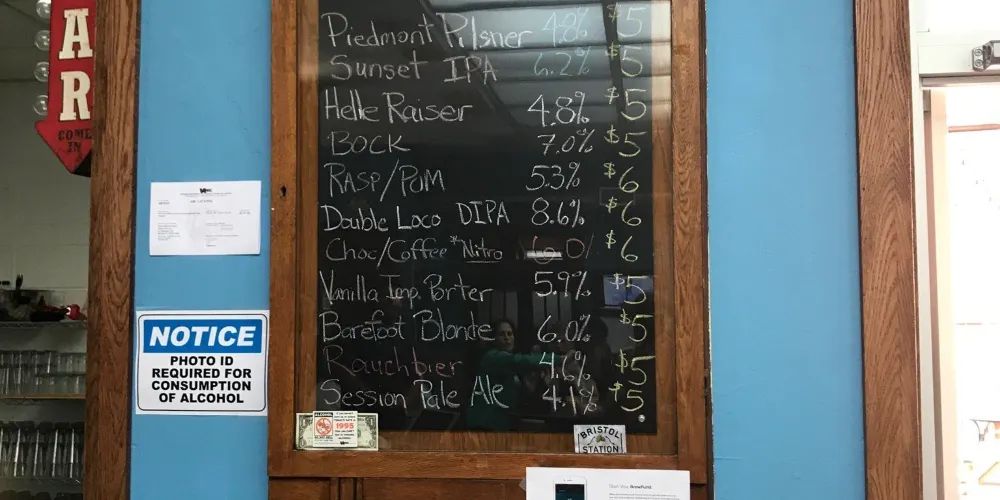 A
R
COME
IN
NOTICE
PHOTO ID
REQUIRED FOR
CONSUMPTION
OF ALCOHOL
Piedmont Pilsner 4.8% $5
Sunset IPA 6.2% $5
Helle Raiser 4.8% $5
BOCK 7.0% $5
RASP/POM 5.3% $6
Double Loco DIPA 8.6% $6
Choc/Coffee *Nitro 6.0% $6
Vanilla Imp. Porter 5.9% $5
Barefoot Blonde 6.0% $5
Rauchbier 4.6% $5
Session Pale Ale $5
1995
BRISTOL
STATION